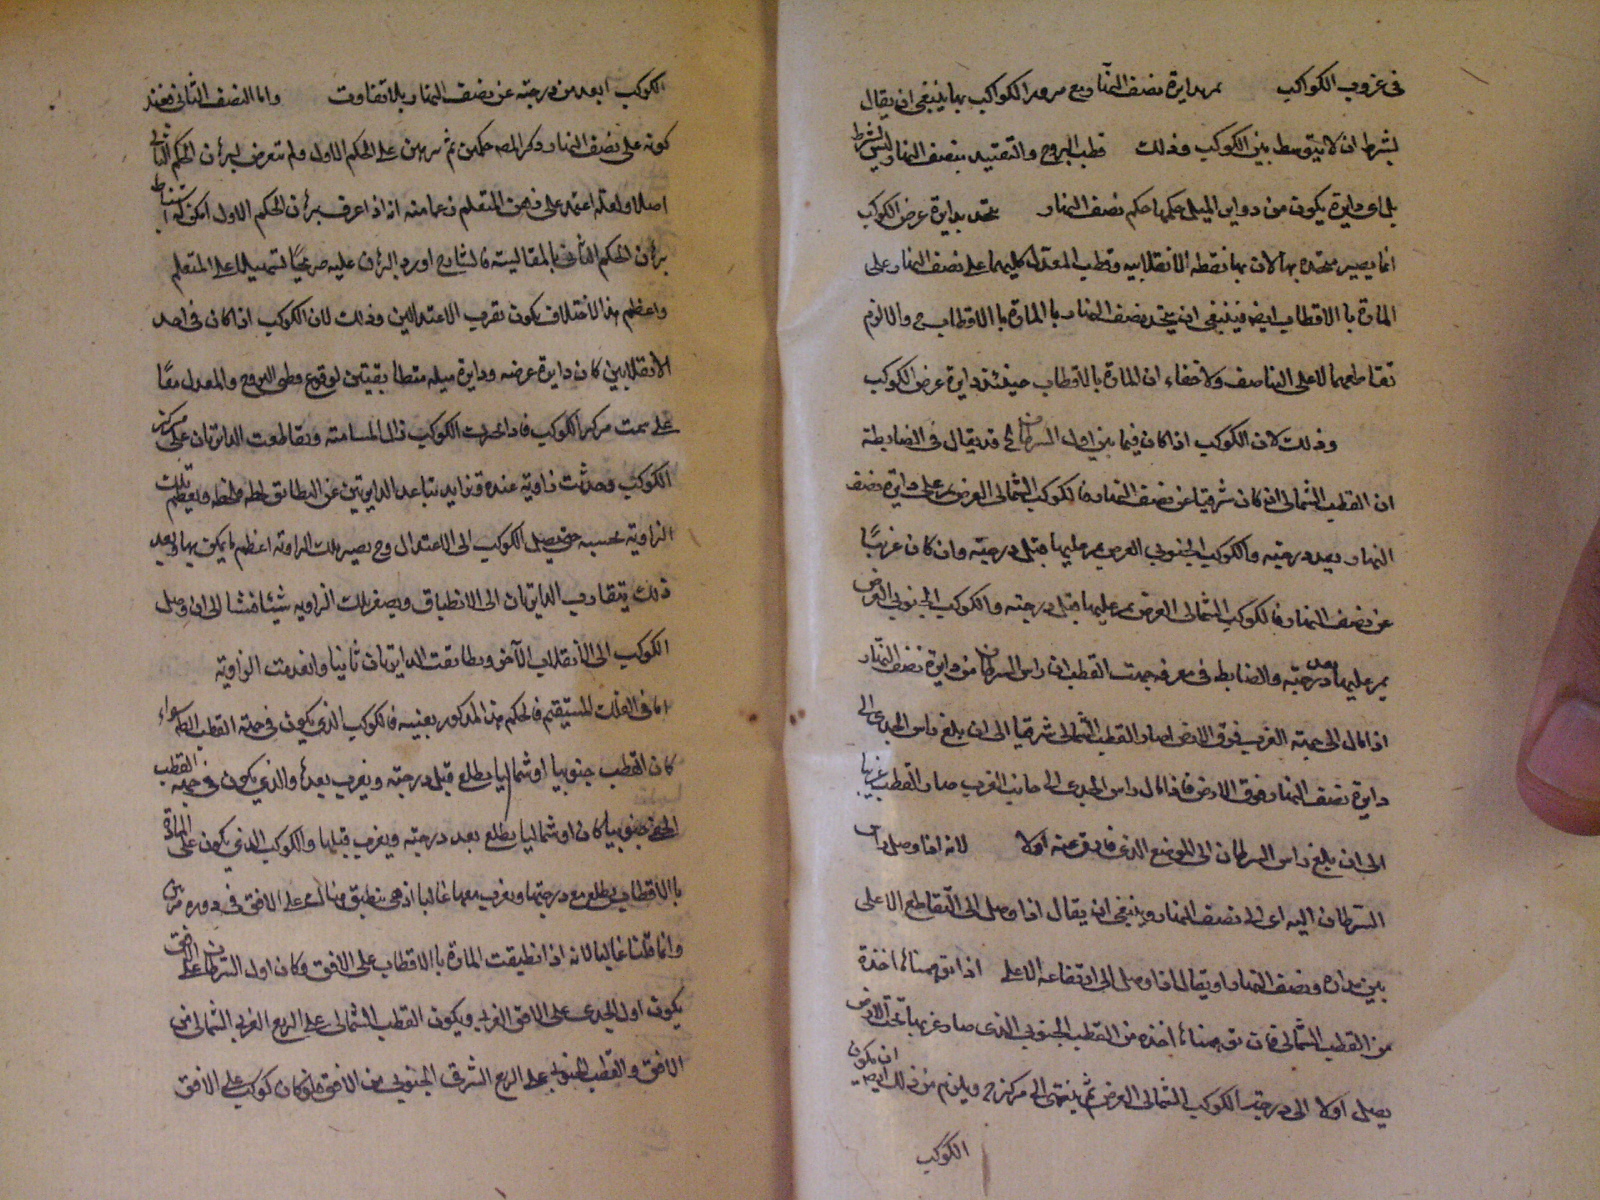 فى غروب الكواكب يمر بدايرة نصف النهار مع مرور الكواكب بها ينبغى ان يقال
بشرط ان لا يتوسط بين الكوكب وذلك قطب البروج والتقييد بنصف النهار ليس بشرط
بل اى دايرة يكون من دواير الميل حكمها حكم نصف النهار يتحد بدايرة عرض الكوكب
انما يصير متحدة بها لان بها نقطه الانقلابيه وقطب المعدل كليهما على نصف النهار على
المارة بالاقطاب ايضا فينبغى ان يتحد نصف النهار بالمارة بالاقطاب ح والا لزم
تقاطعهما لا على التناصف ولا خفاء ان المارة بالاقطاب حينئذ دايرة عرض الكوكب
وذلك لان الكوكب اذا كان فيما بين اول السرطان قد يقال فى الضابطة
ان القطب الشمالى ان كان شرقيا عن نصف النهار فالكوكب الشمالى العرض يمر على دايرة نصف
النهار بعد درجته والكوكب الجنوبى العرض يمر عليها قبل درجته وان كان غربيا
عن نصف النهار فالكوكب الشمالى العرض يمر عليها قبل درجته والكوكب الجنوبى العرض
يمر عليها بعد درجته والضابط فى معرفه جهت القطب ان راس السرطان من دايرة نصف النهار
اذا مال الى جهة الغرب فوق الارض صار القطب الشمالى شرقيا الى ان بلغ راس الجدى الى
دايرة نصف النهار فوق الارض فاذا مال راس الجدى الى جانب الغرب صار القطب غربيا
الى ان بلغ راس السرطان الى الموضع الذى فارق عنه اولا لانه اذا وصل راس
السرطان اليه اى الى نصف النهار وينبغى ان يقال اذا وصل الى التقاطع الاعلى
بين مداره ونصف النهار او يقال اذا وصل الى ارتفاعه الاعلى اخذة
من القطب الشمالى اخذه من القطب الجنوبى الذى صار غربيا تحت الارض
يصل اولا الى درجة الكوكب الشمالى العرض ثم ينتهى الى مركزه ويلزم من ذلك ايضا ان يكون
الكوكب
الكوكب ابعد من درجته عن نصف النهار بلا تفاوت واما النصف الثانى فعند
كونه على نصف النهار ذكر المصـ حكمين ثم برهن على الحكم الاول ولم يتعرض لبرهان الحكم الثانى
اصلا ولعله اعتمد على فهن المتعلم زعما منه انه اذا عرف برهان الحكم الاول امكن له استنباط
برهان الحكم الثانى بالمقايسة فالشارح اورد البرهان عليه صريحا تسهيلا على المتعلم
واعظم هذا الاختلاف يكون بقرب الاعتدالين وذلك لان الكوكب اذا كان فى احد
الانقلابين كان دايرة عرضه ودايرة ميله متطابقتين لوقوع قطبى البروج والمعدل معا
على سمت مركز الكوكب فاذا تحرك الكوكب زال المسامتة وتقاطعت الدايرتان على مركز
الكوكب وحدثت زاوية عنده وتزايد تباعد الدايرتين عن التطابق لحظه فلحظه ويعظم تلك
الزاوية بحسبه حتى يصل الكوكب الى الاعتدال وح يصير تلك الزاوية اعظم ما يمكن بها وبعد
ذلك يتقارب الدايرتان الى الانطباق ويصغر تلك الزاويه شيئا فشيئا الى ان وصل
الكوكب الى الانقلاب الآخر وتطابقت الدايرتان ثانيا وانعدمت الزاوية
اما فى الفلك المستقيم فالحكم هذا المذكور بعينه فالكوكب الذى يكون فى جهة القطب الظاهر سواء
كان القطب جنوبيا او شماليا يطلع قبل درجته ويغرب بعدها والذى يكون فى جهة القطب
الخفى جنوبيا كان او شماليا يطلع بعد درجته ويغرب قبلها والكوكب الذى يكون على المارة
بالاقطاب يطلع مع درجتها ويغرب معها غالبا اذ هى ينطبق هناك على الافق فى دوره مرتين
وانما قلنا غالبا لانه اذا انطبقت المارة بالاقطاب على الافق وكان اول السرطان على الافق
يكون اول الجدى على الافق الغربى ويكون القطب الشمالى على الربع الغربى الشمالى من
الافق والقطب الجنوبى على الربع الشرقى الجنوبى من الافق فلو كان كوكب على الافق